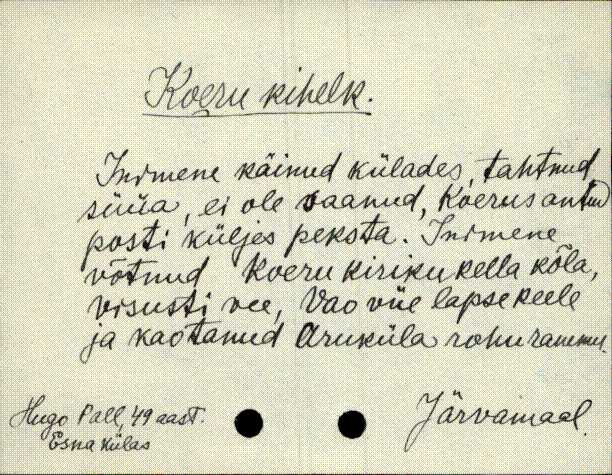 Koeru kihelk.
Inimene käinud külades, tahtnud
süüa, ei ole saanud, Koerus antud
posti küljes peksta. Inimene
võtnud Koeru kiriku kella kõla,
visusti vee, Vao viie lapse keele
ja kaotanud Aruküla rohuraamu.
Hugo Pall, 49 aast.
Esna külas
Järvamaal.